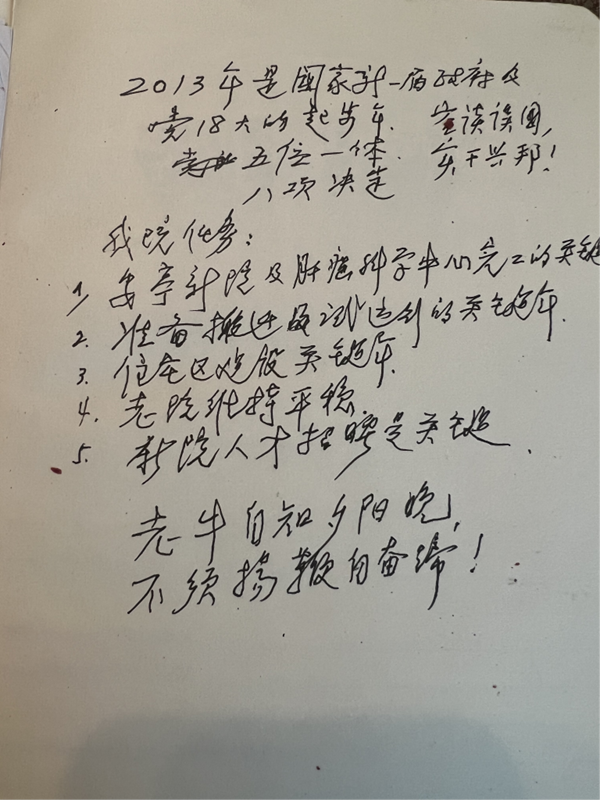 2013年是国家新一届政府及
党18大的起步年. 空谈误国,
五位一体. 实干兴邦!
八项决定
我院任务:
1, 安亭新院及肝癌科学中心完工的关键
2. 准备搬迁及试运行的关键年.
3. 住在区建设关键年.
4. 老院维持平稳.
5. 新院人才招聘是关键.
老牛自知夕阳晚,
不须扬鞭自奋蹄!